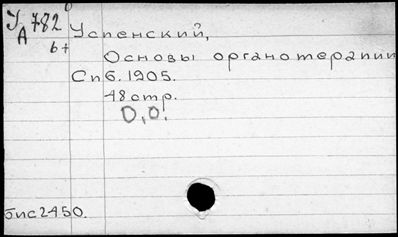 У 782
А
б+
Успенский,
Основы органотерапии
Спб. 1905.
48 стр.
О.О.
бис 2450.